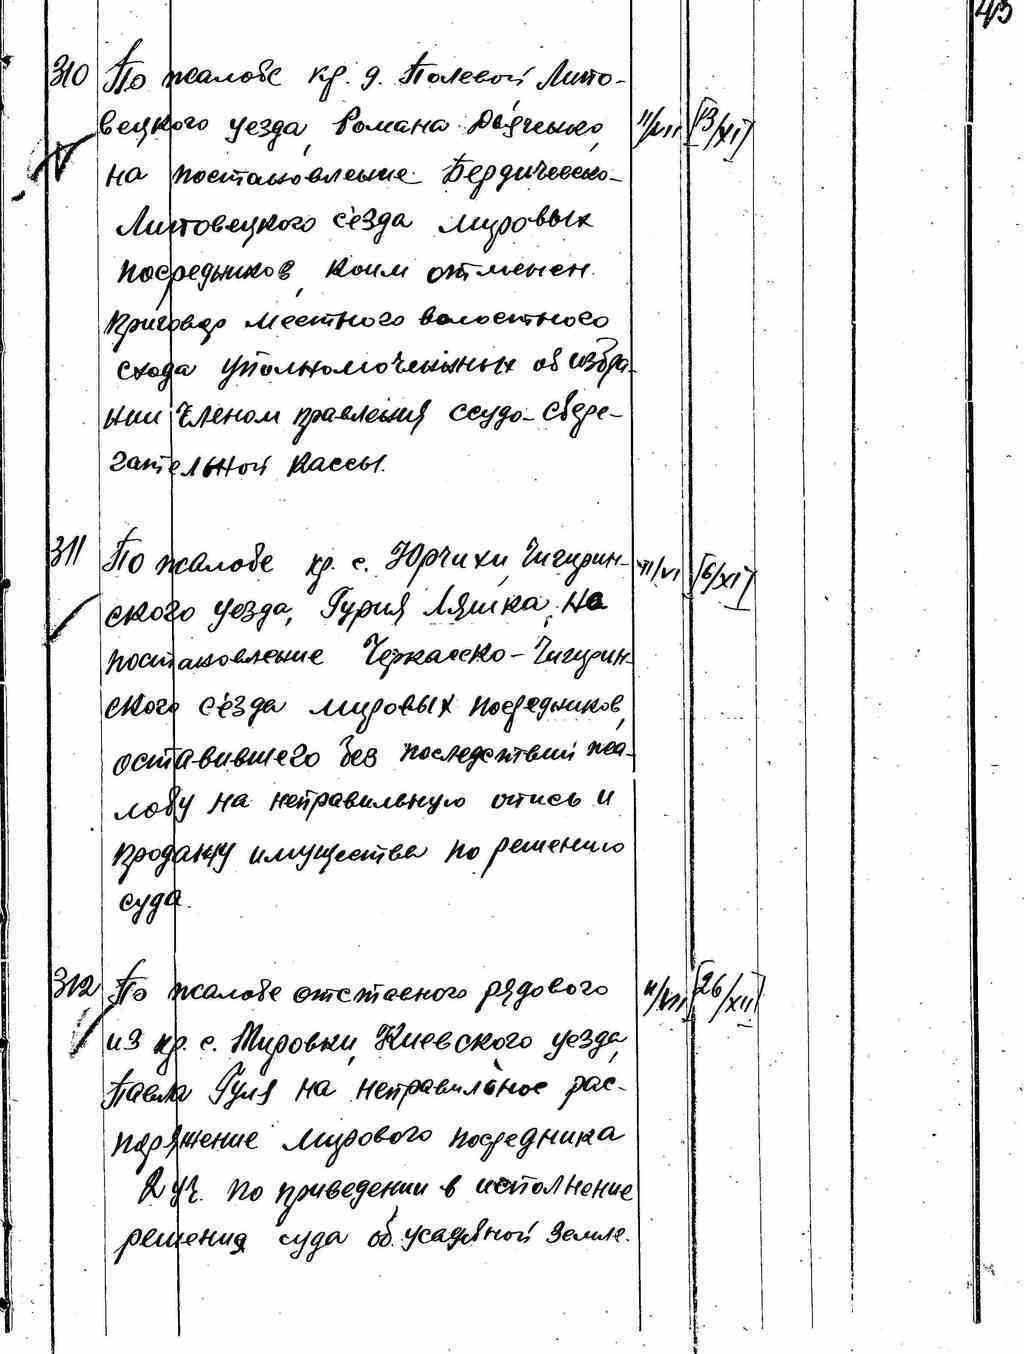 43
310 По жалобе кр. д. Полевой Липо-
вецкого уезда, Романа Дяченко, 11/VII [13/XI]
на постановление Бердическо-
Липовецкого съезда мировых
посредников, коим отменен
приговор местного волостного
схода уполномоченных об избра-
нии членом правления ссудо-сбере-
гательной кассы.
311 По жалобе кр. с. Юрчихи, Чигирин- 11/VI [6/XI]
ского уезда, Гурия Ляшка, на
постановление Черкасско-Чигирин-
ского съезда мировых посредников,
оставившего без последствий жа-
лобу на неправильную опись и
продажу имущества по решению
суда.
312 По жалобе отставного рядового 11/VII [26/XII]
из кр. с. Мировки, Киевского уезда,
Павла Гуля на неправильное рас-
поряжение мирового посредника
2 уч. по приведении в исполнение
решения суда об усадьбной земле.